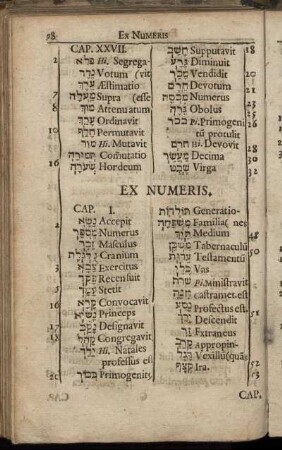 98 EX NUMERIS
CAP. XXVII.
2 פלא Hi. Segrega-
נדר Votum (vit
ערך Æstimatio
7 מעלה Supra (esse
8 מוך Attenuatum
ערך Ordinavit
10 חלף Permutavit
מור Hi. Mutavit
תמורה Comutatio
16 שערה Hordeum
חשב Supputavit 18
גרע Diminuit
מכר Vendidit 20
חרם Devotum
מכסת Numerus 23
גרה Obolus
בכר Pi. Primogeni
tū protulit
חרם Hi. Devovit
מעשר Decima
שבט Virga 32
EX NUMERIS.
CAP. I.
נשא Accepit
מספר Numerus
זכר Masculus
גלגלת Cranium
צבא Exercitus
פקד Recensuit
5 עמד Stetit
16 קרא Convocavit
נשיא Princeps
17 נקב Designavit
קהל Congregavit
ילד Hi. Natales
professus est
20 בכור Primogenitꝰ
תולדות Generatio-
משפחה Familia( nes
תוך Medium
משכן Tabernaculū 50
עדת Testamentū
כלי Vas
שרת Pi. Ministravit
castramet.est
נסע Profectus est.
ירד Descendit
זר Extraneus
קרב Appropin-
דגל Vexillū(quās 52
קצף Ira. 53
CAP.